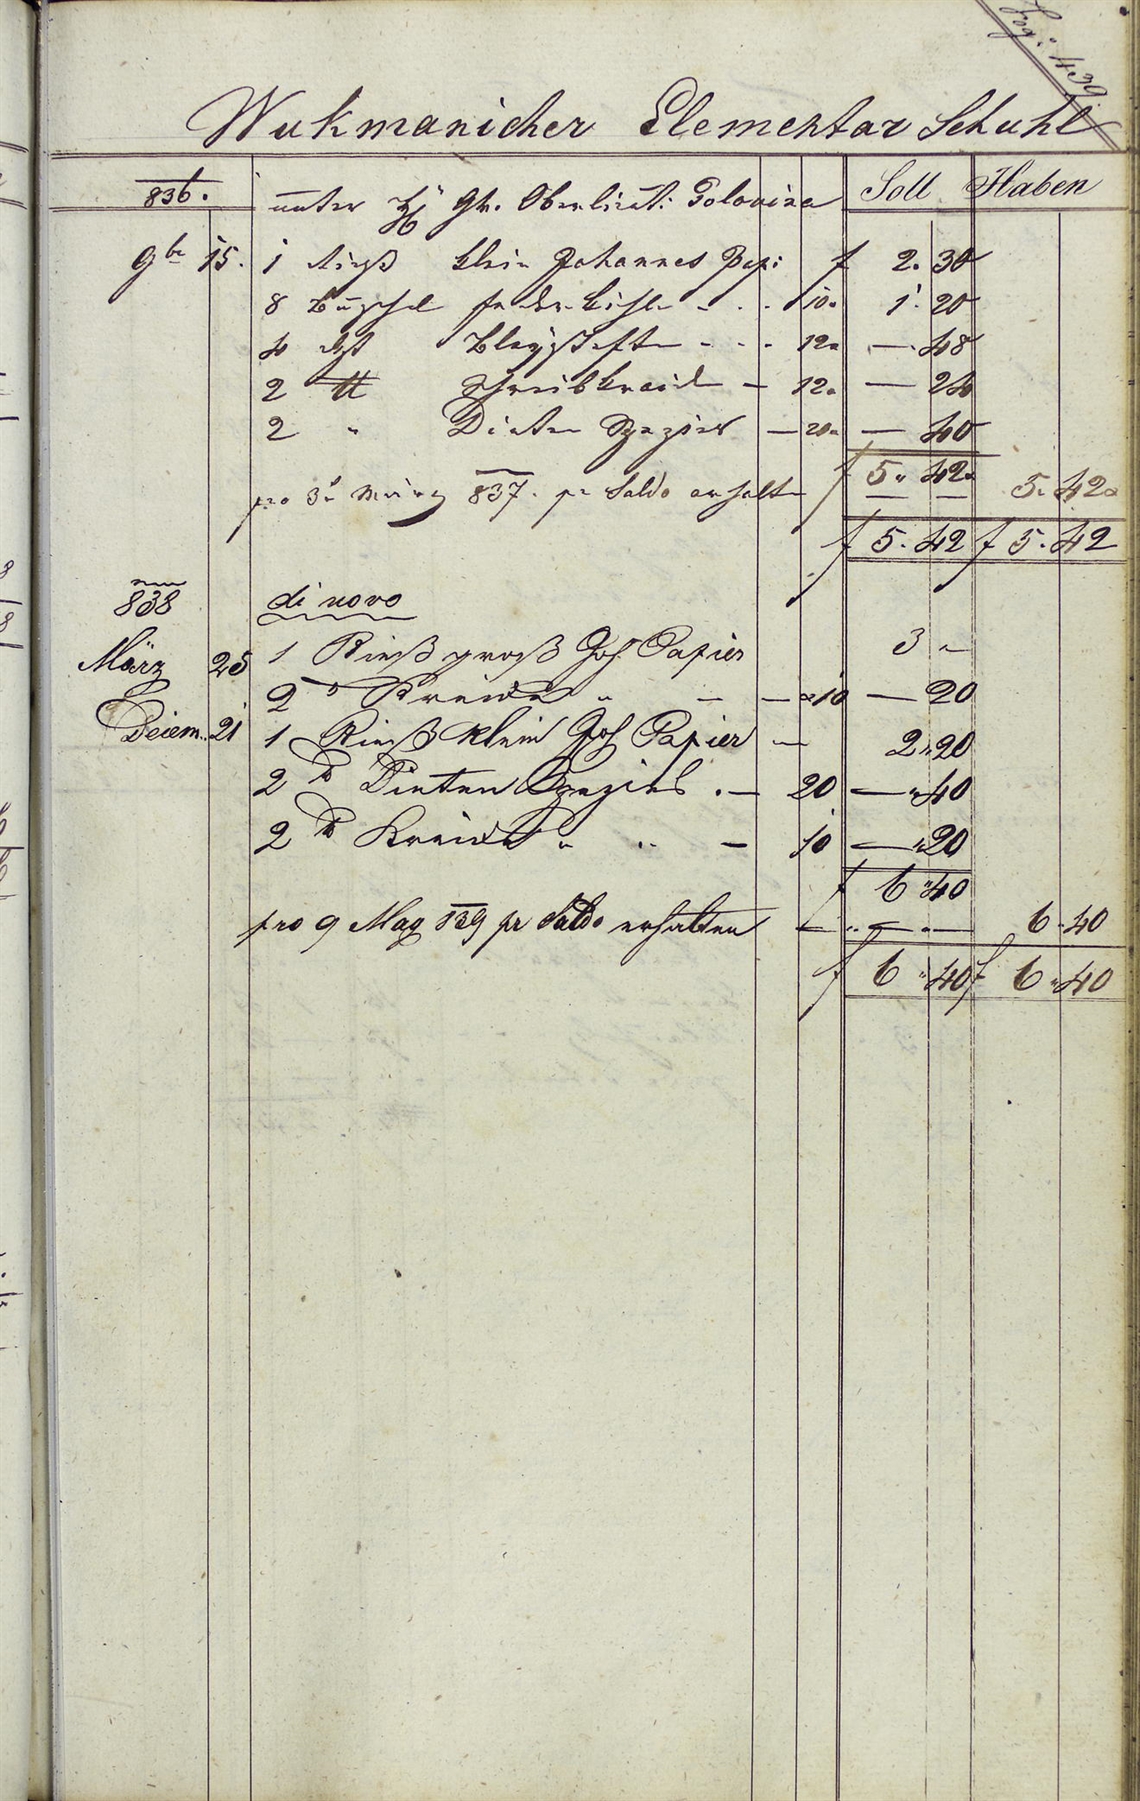 pag: 439
Wukmanicher Elementar Schuhl
836. unter H Gr. Oberlieut: Polovina Soll Haben
9br 15. 1 Rieß klein Johannes Papi f 2. 30
8 Büschel Federkihle - . . 10. 1. 20
4 Bleystifte - . - 12. — 48
2 ℔ Schreibkraide — 12. — 24
2 " Dinten Spezies — 20. — 40
f 5. 42.
pro 3 März 837. pr Saldo erhalten 5. 42.
f 5. 42 f 5. 42
838 di novo
März 25 1 Rieß groß Joh. Papier 3 "
2 ℔ Kreide " — — a 10 — 20
Dezem. 21 1 Rieß klein Joh Papier — 2 " 20
2 ℔ Dinten Spezies . — 20 — " 40
2 ℔ Kreide " " — 10 — " 20
f 6 " 40
pro 9 May 839 pr Saldo erhalten — " — " — 6 " 40
f 6 " 40 f 6 " 40